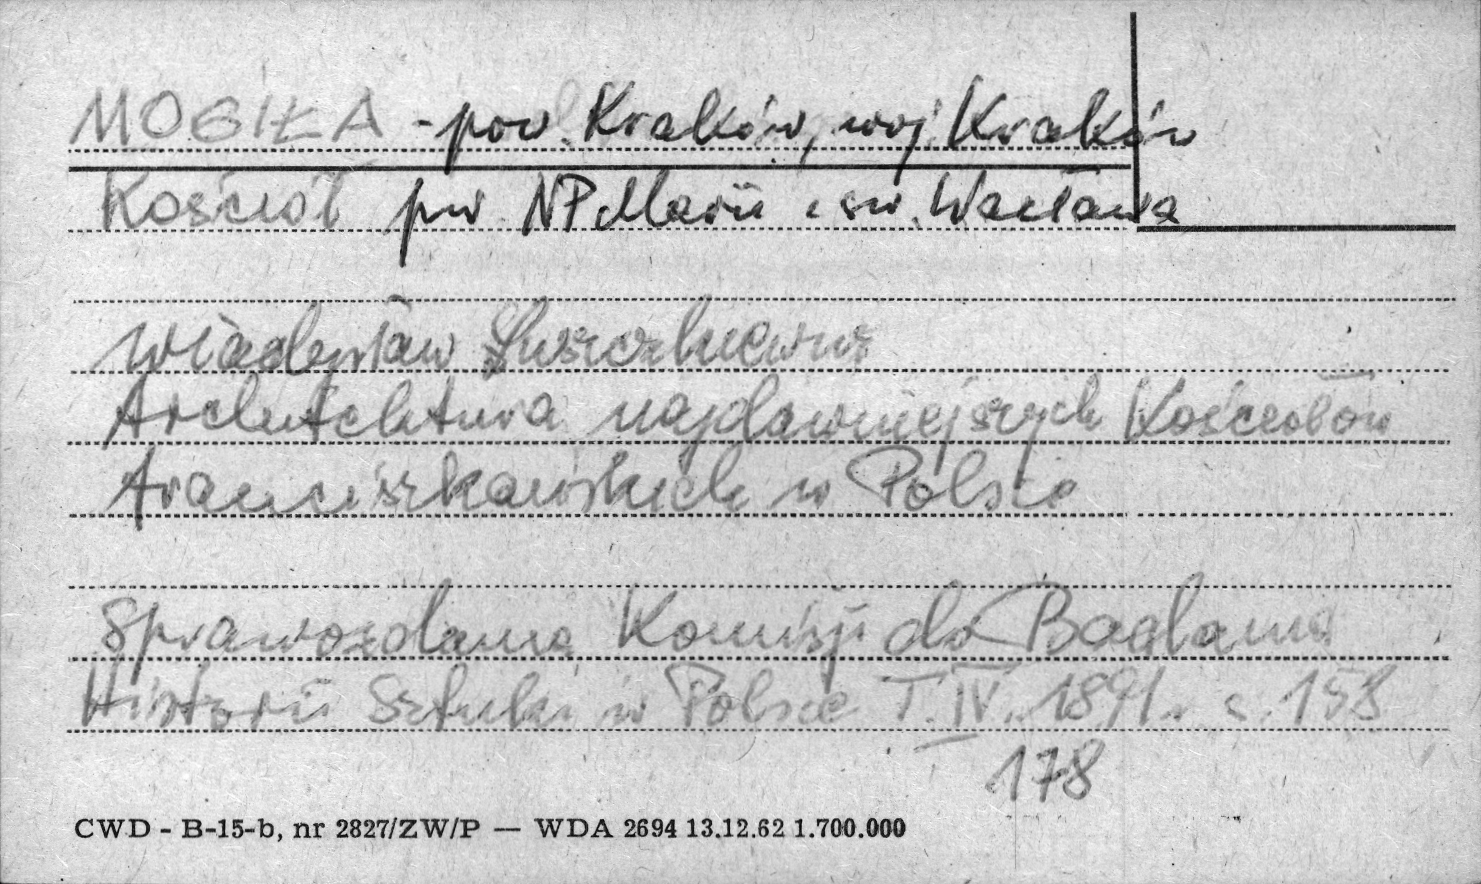 MOGIŁA - pow. Kraków, woj. Kraków
Kościół pw. NP Marii i św. Wacława
Władysław Łuszczkiewicz
Architektura najdawniejszych Kościołów
franciszkańskich w Polsce
Sprawozdania Komisji do Badania
Historii Sztuki w Polsce T. IV. 1891. s. 158
178
CWD - B-15-b, nr 2827/ZW/P — WDA 2694 13.12.62 1.700.000